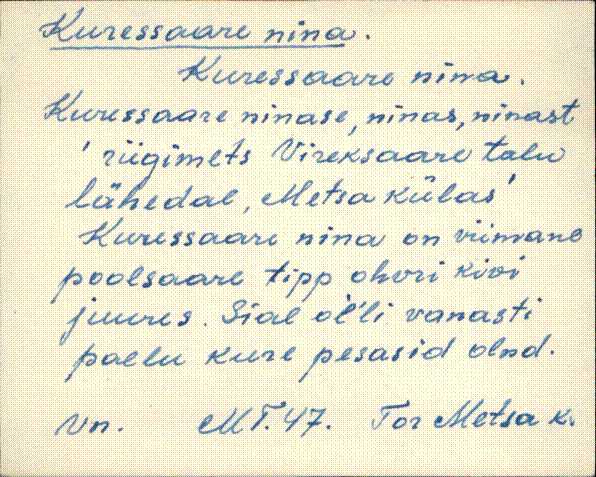 Kuressaare nina.
Kuressaare nina.
Kuressaare ninase, ninas, ninast
'riigimets Vireksaare talu
lähedal, Metsa külas'
Kuressaare nina on viimane
poolsaare tipp ohvri kivi
juures. Sial ol'li vanasti
paelu kure pesasid olnd.
Vn. MT. 47. Tor Metsa k.